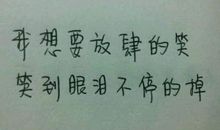 我想要放肆的笑
笑到眼泪不停的掉